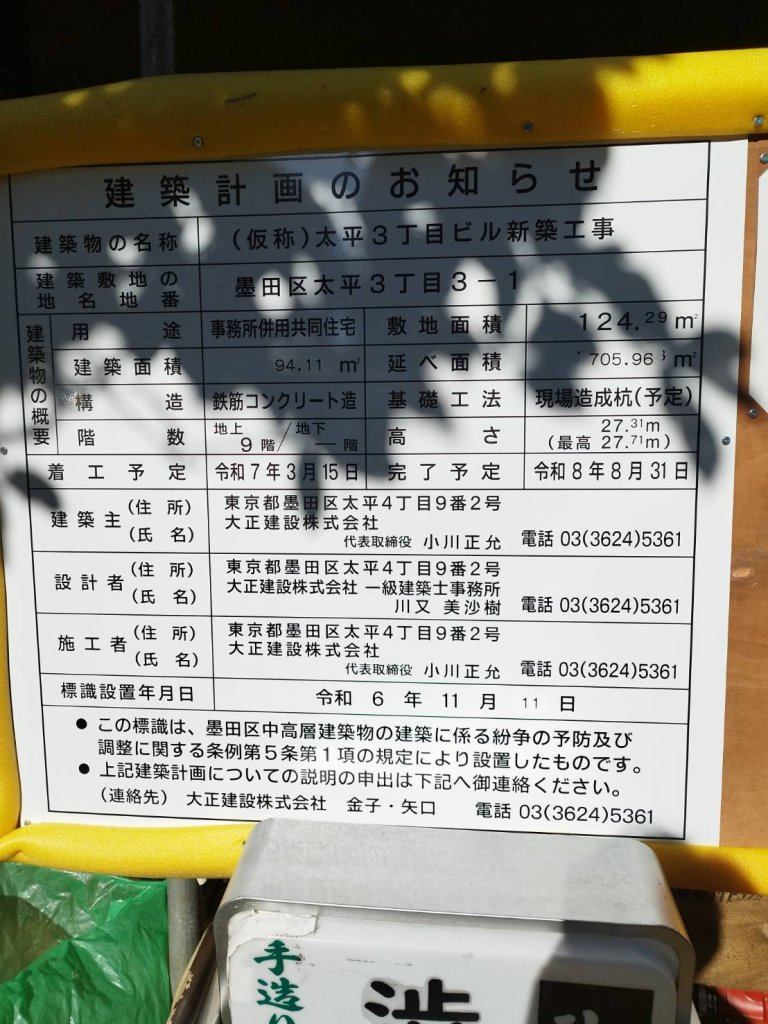 建築計画のお知らせ
建築物の名称 (仮称)太平3丁目ビル新築工事
建築敷地の地名地番 墨田区太平3丁目3-1
建築物の概要
用途 事務所併用共同住宅 敷地面積 124.29㎡
建築面積 94.11㎡ 延べ面積 705.96㎡
構造 鉄筋コンクリート造 基礎工法 現場造成杭(予定)
階数 地上9階/地下―階 高さ 27.31m
(最高 27.71m)
着工予定 令和7年3月15日 完了予定 令和8年8月31日
建築主 (住所) 東京都墨田区太平4丁目9番2号
(氏名) 大正建設株式会社
代表取締役 小川正允 電話 03(3624)5361
設計者 (住所) 東京都墨田区太平4丁目9番2号
(氏名) 大正建設株式会社 一級建築士事務所
川又 美沙樹 電話 03(3624)5361
施工者 (住所) 東京都墨田区太平4丁目9番2号
(氏名) 大正建設株式会社
代表取締役 小川正允 電話 03(3624)5361
標識設置年月日 令和 6 年 11 月 11 日
● この標識は、墨田区中高層建築物の建築に係る紛争の予防及び
調整に関する条例第5条第1項の規定により設置したものです。
● 上記建築計画についての説明の申出は下記へ御連絡ください。
(連絡先) 大正建設株式会社 金子・矢口 電話 03(3624)5361
手造り